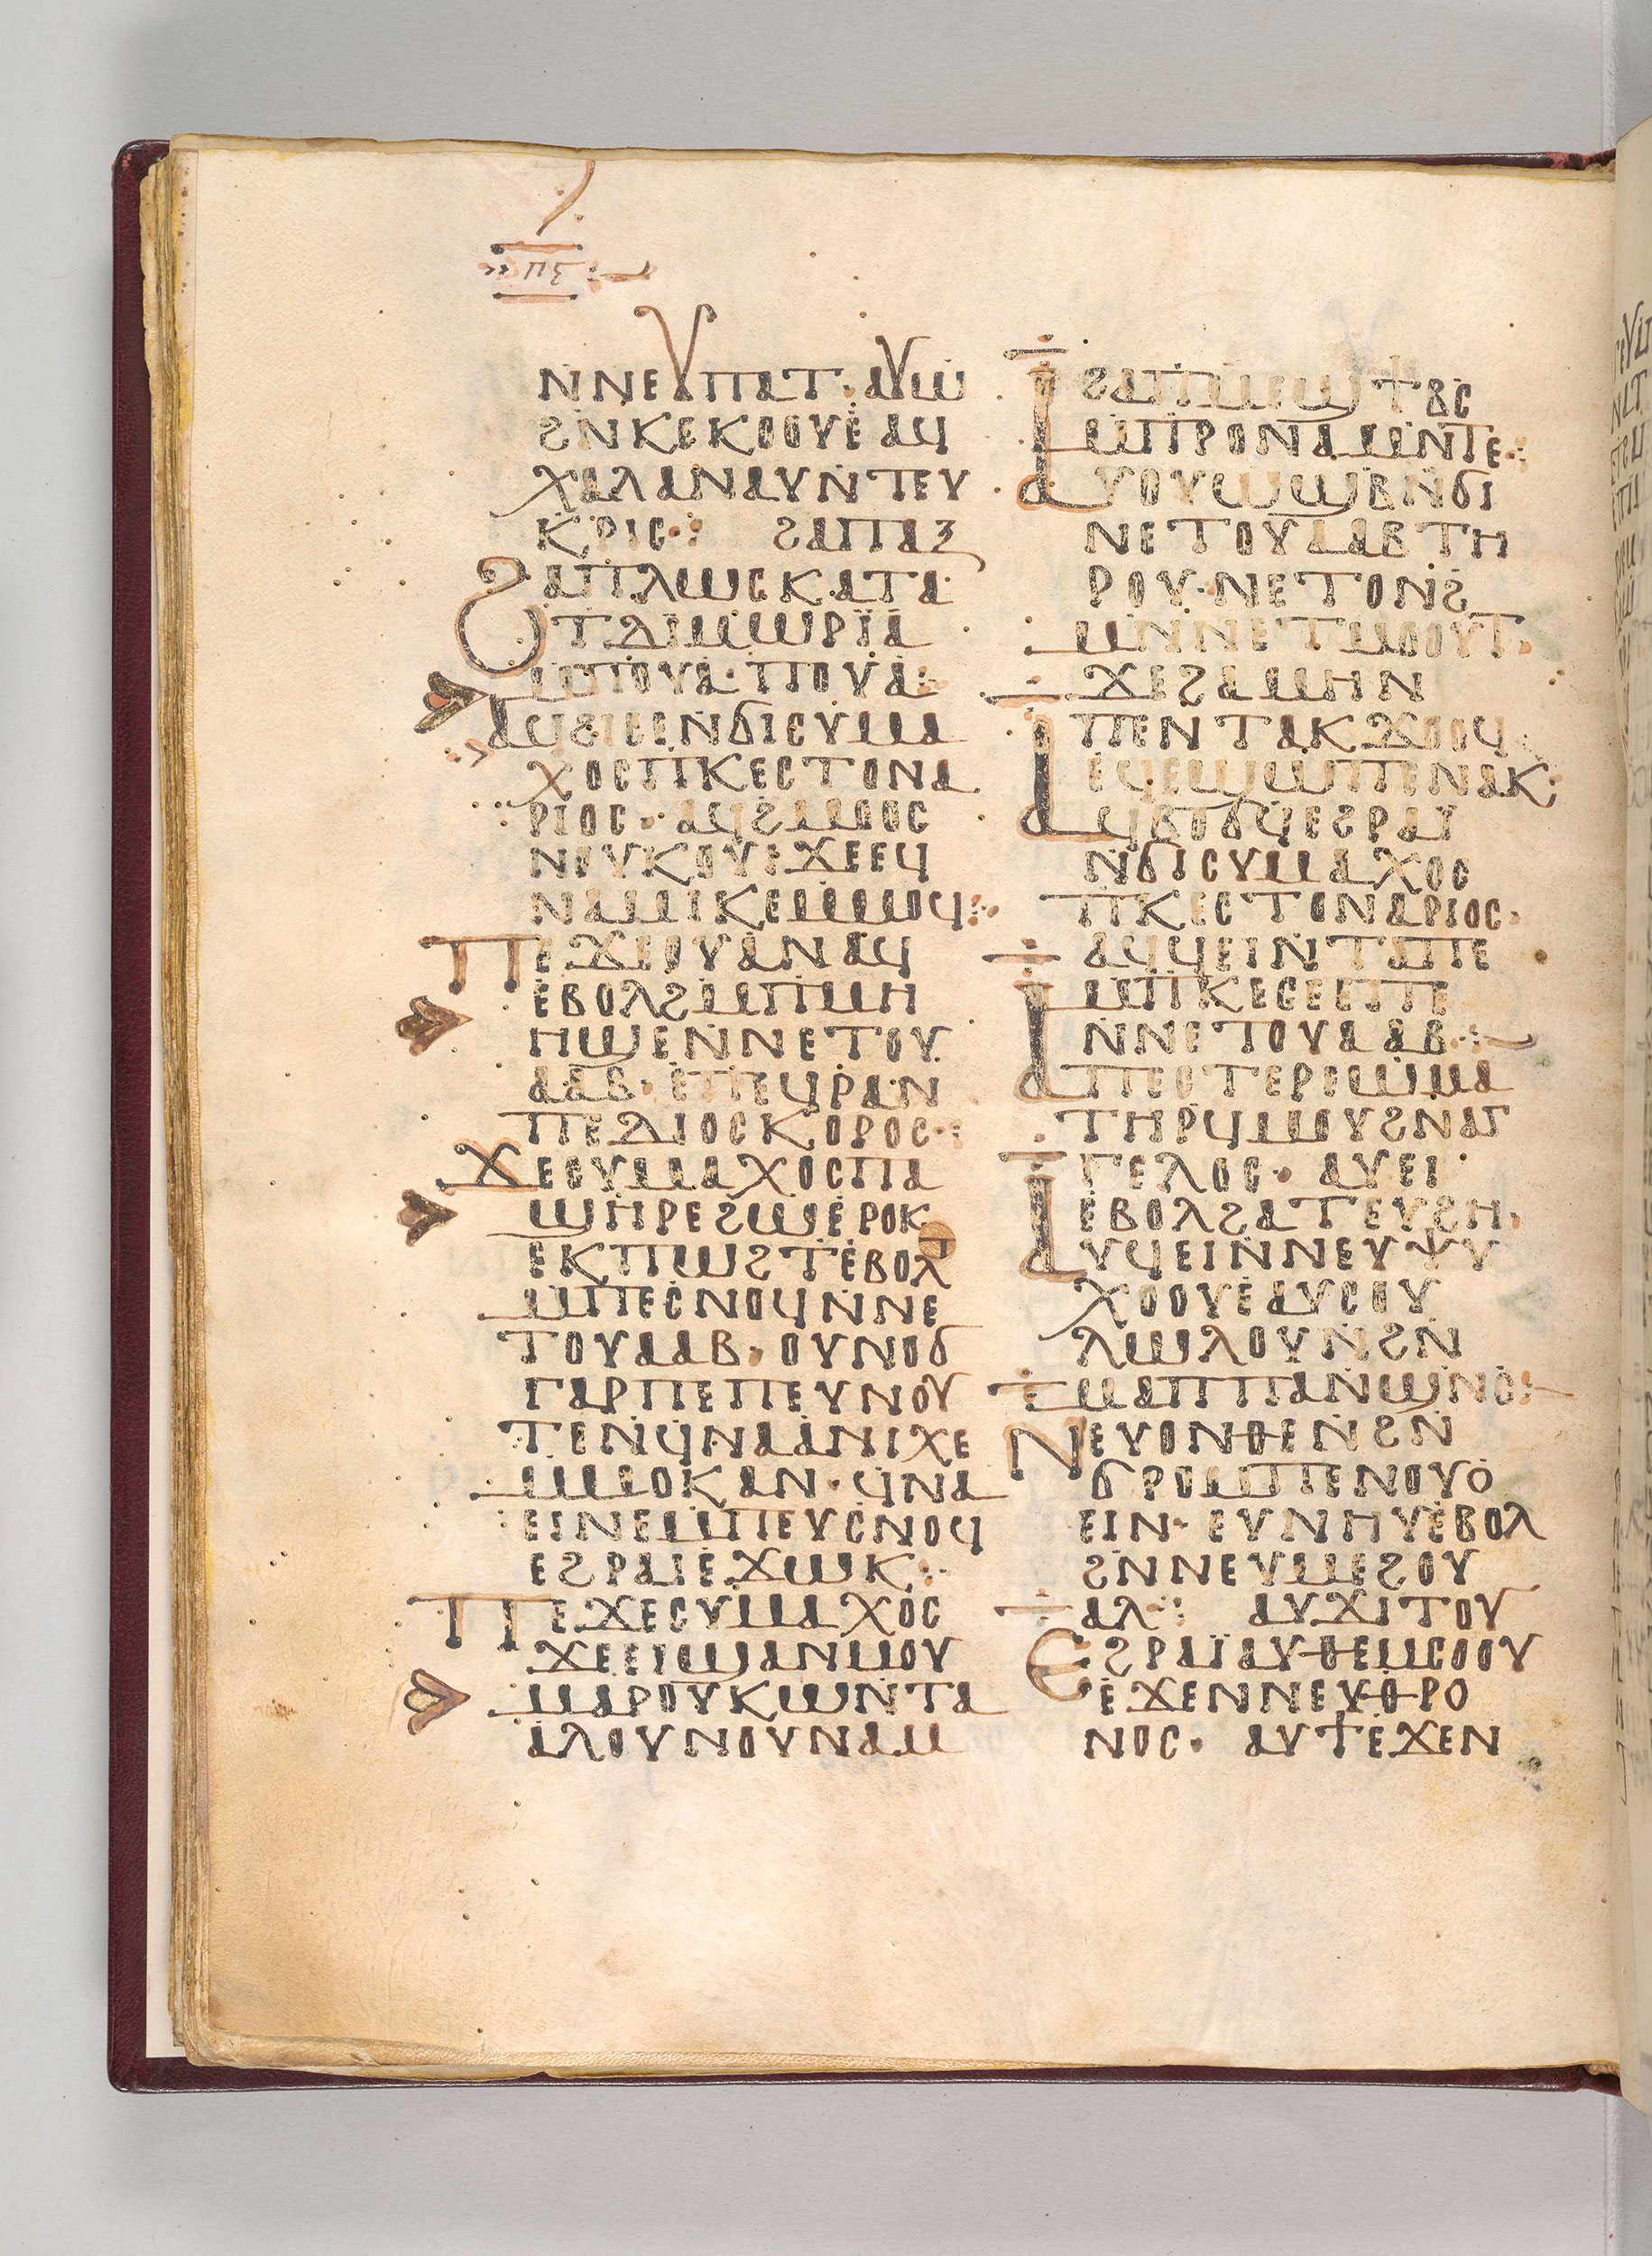 ⲡⲋ
ⲛⲛⲉⲩⲡⲁⲧ· ⲁⲩⲱ
ϩⲛⲕⲉⲕⲟⲟⲩⲉ ⲁϥ
ⲭⲁⲗⲁ ⲛⲁⲩ ⲛⲧⲉⲩ
ⲕⲣⲓⲥ· ϩⲁⲡⲁⲝ
ϩⲁⲡⲗⲱⲥ ⲕⲁⲧⲁ
ⲧⲇⲓⲙⲱⲣⲓⲁ
ⲙⲡⲟⲩⲁ· ⲡⲟⲩⲁ·
ⲁϥϩⲓⲉⲓⲛϭⲓⲥⲩⲙⲁ
ⲭⲟⲥ ⲡⲕⲉⲥⲧⲟⲛⲁ
ⲣⲓⲟⲥ· ⲁϥϩⲙⲟⲟⲥ
ⲛⲟⲩⲕⲟⲩⲓ ϫⲉ ⲉϥ
ⲛⲁⲇⲓⲕⲉ ⲙⲙⲟϥ·
ⲡⲉϫⲉ ⲟⲩⲁ ⲛⲁϥ
ⲉⲃⲟⲗ ϩⲙ ⲡⲙⲏ
ⲏϣⲉ ⲛⲛⲉⲧⲟⲩ
ⲁⲁⲃ· ⲉⲡⲉϥⲣⲁⲛ
ⲡⲉ ⲇⲓⲟⲥⲕⲟⲣⲟⲥ·
ϫⲉ ⲥⲩⲙⲁⲭⲟⲥ ⲡⲁ
ϣⲏⲣⲉ ϩⲱ ⲉⲣⲟⲕ
ⲉⲕⲡⲱϩⲧ ⲉⲃⲟⲗ
ⲙⲡⲉⲥⲛⲟϥ ⲛⲛⲉ
ⲧⲟⲩⲁⲁⲃ· ⲟⲩⲛⲟϭ
ⲅⲁⲣ ⲡⲉ ⲡⲉⲩⲛⲟⲩ
ⲧⲉ ⲛϥⲛⲁⲁⲛⲓⲭⲉ
ⲙⲙⲟⲕ ⲁⲛ· ϥⲛⲁ
ⲉⲓⲛⲉ ⲙⲡⲉⲩⲥⲛⲟϥ
ⲉϩⲣⲁⲓ ⲉϫⲱⲕ·
ⲡⲉϫⲉ ⲥⲩⲙⲁⲭⲟⲥ
ϫⲉ ⲉⲓϣⲁⲛⲙⲟⲩ
ⲙⲁⲣⲟⲩⲕⲱ ⲛⲧⲁ
ⲁⲗⲟⲩ ⲛⲟⲩⲛⲁⲙ
ϩⲁ ⲡⲙⲉϣⲧⲃⲥ
ⲙⲡⲣⲟ ⲛⲁⲙⲛⲧⲉ·
ⲁⲩⲟⲩⲱϣⲃ ⲛϭⲓ
ⲛⲉⲧⲟⲩⲁⲁⲃ ⲧⲏ
ⲣⲟⲩ· ⲛⲉⲧⲟⲛϩ
ⲙⲛ ⲛⲉⲧⲙⲟⲟⲩⲧ
ϫⲉ ϩⲁⲙⲏⲛ
ⲡⲉⲛⲧⲁⲕϫⲟⲟϥ
ⲉϥⲉϣⲱⲡⲉ ⲛⲁⲕ·
ⲁϥⲃⲟϭϥ ⲉϩⲣⲁⲓ
ⲛϭⲓ ⲥⲩⲙⲁⲭⲟⲥ
ⲡⲕⲉⲥⲧⲟⲛⲁⲣⲓⲟⲥ·
ⲁϥϥⲉⲓ ⲛⲧⲁⲡⲉ
ⲙⲡⲕⲉⲥⲉⲉⲡⲉ
ⲛⲛⲉⲧⲟⲩⲁⲁⲃ·
ⲁⲡⲉⲥⲧⲉⲣⲉⲱⲙⲁ
ⲧⲏⲣϥ ⲙⲟⲩϩ ⲛⲁⲅ
ⲅⲉⲗⲟⲥ· ⲁⲩⲉⲓ
ⲉⲃⲟⲗ ϩⲁⲧⲉⲩϩⲏ·
ⲁⲩϥⲉⲓ ⲛⲛⲉⲩⲯⲩ
ⲭⲟⲟⲩⲉ ⲁⲩⲥⲟⲩ
ⲗⲱⲗⲟⲩ ⲛϩⲛ
ⲙⲁⲡⲡⲁ ⲛϣⲛⲥ·
ⲛⲉⲩⲟ ⲛⲑⲉ ⲛϩⲛ
ϭⲣⲟⲙⲡⲉ ⲛⲟⲩⲟ
ⲉⲓⲛ· ⲉⲩⲛⲏⲩ ⲉⲃⲟⲗ
ϩⲛ ⲛⲉⲩⲙⲉϩⲟⲩ
ⲁⲗ· ⲁⲩϫⲓⲧⲟⲩ
ⲉϩⲣⲁⲓ ⲁⲩⲑⲉⲙⲥⲟⲟⲩ
ⲉϫⲉⲛ ⲛⲉⲩⲑⲣⲟ
ⲛⲟⲥ· ⲁⲩϯ ⲉϫⲉⲛ